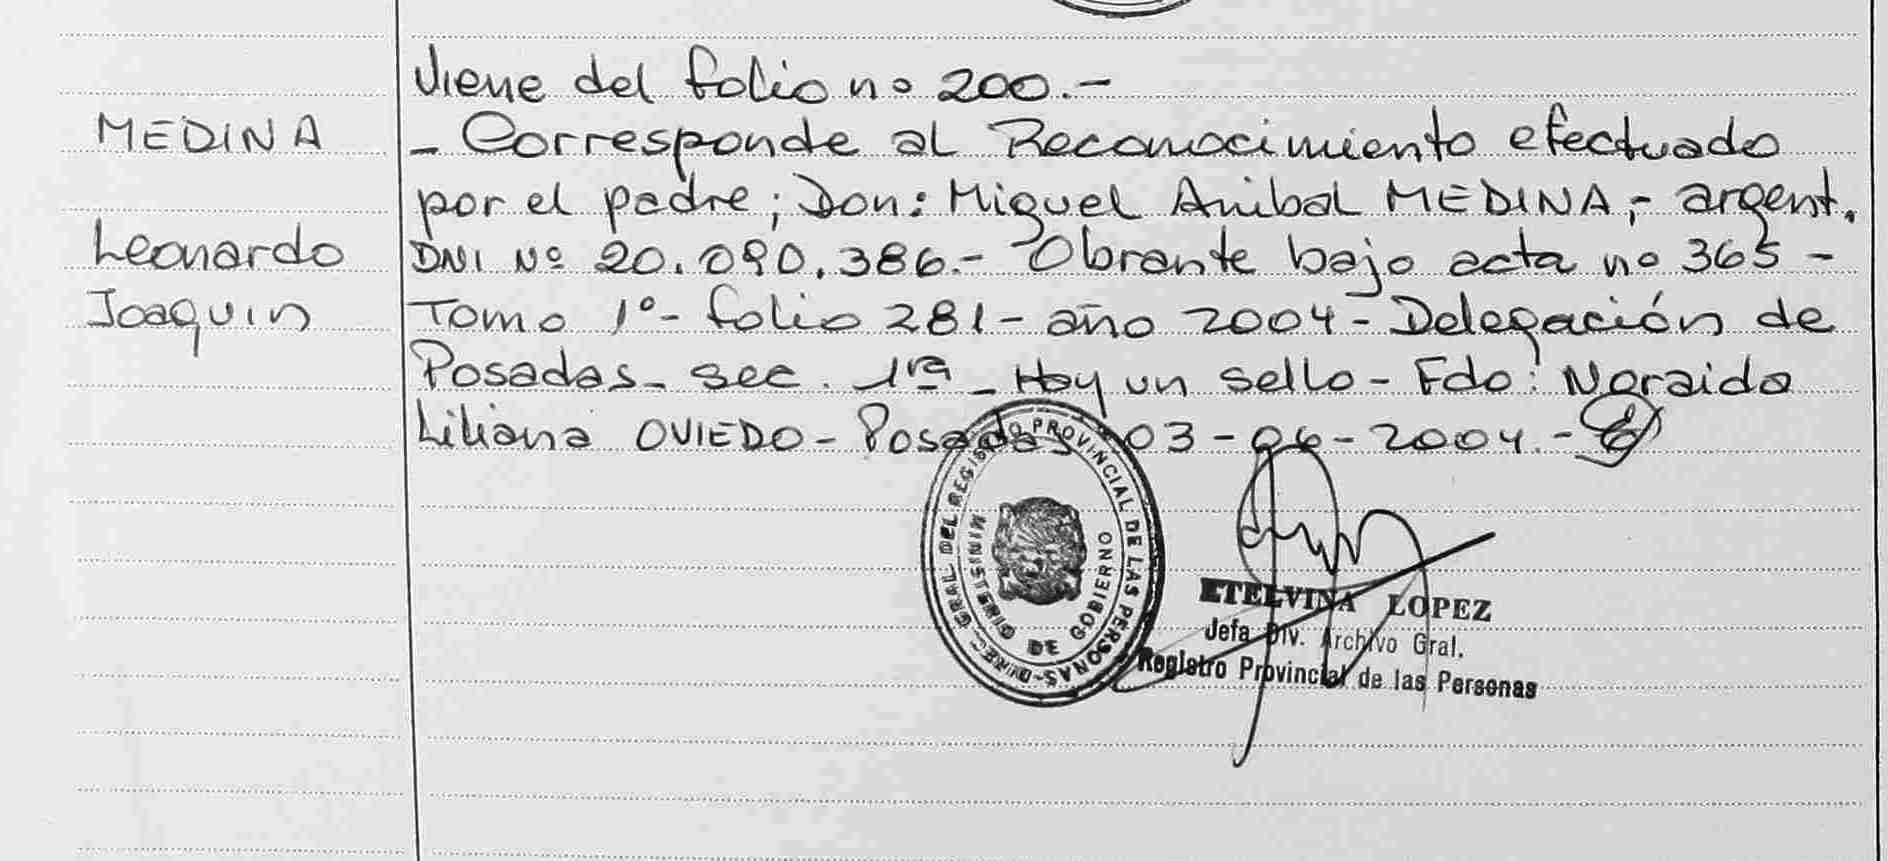 Viene del folio nº 200.-
MEDINA
- Corresponde al Reconocimiento efectuado
por el padre; Don: Miguel Anibal MEDINA,- argent.
Leonardo
DNI Nº 20.090.386.- Obrante bajo acta nº 365 -
Joaquin
Tomo 1º- folio 281- año 2004- Delegación de
Posadas- sec. 1ra - Hay un sello- Fdo: Noraida
Liliana OVIEDO- Posadas 03-06-2004.-
DIREC. GRAL DEL REGISTRO PROVINCIAL DE LAS PERSONAS-
MINISTERIO DE GOBIERNO
ETELVINA LOPEZ
Jefa Div. Archivo Gral.
Registro Provincial de las Personas